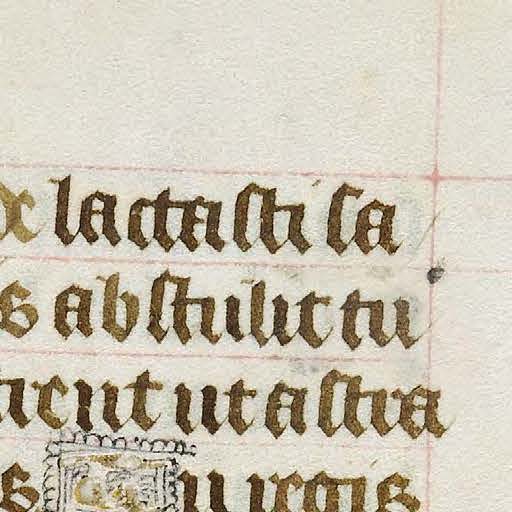 lactasti sa
s abstulit tu
trent ut astra
s Tu regis